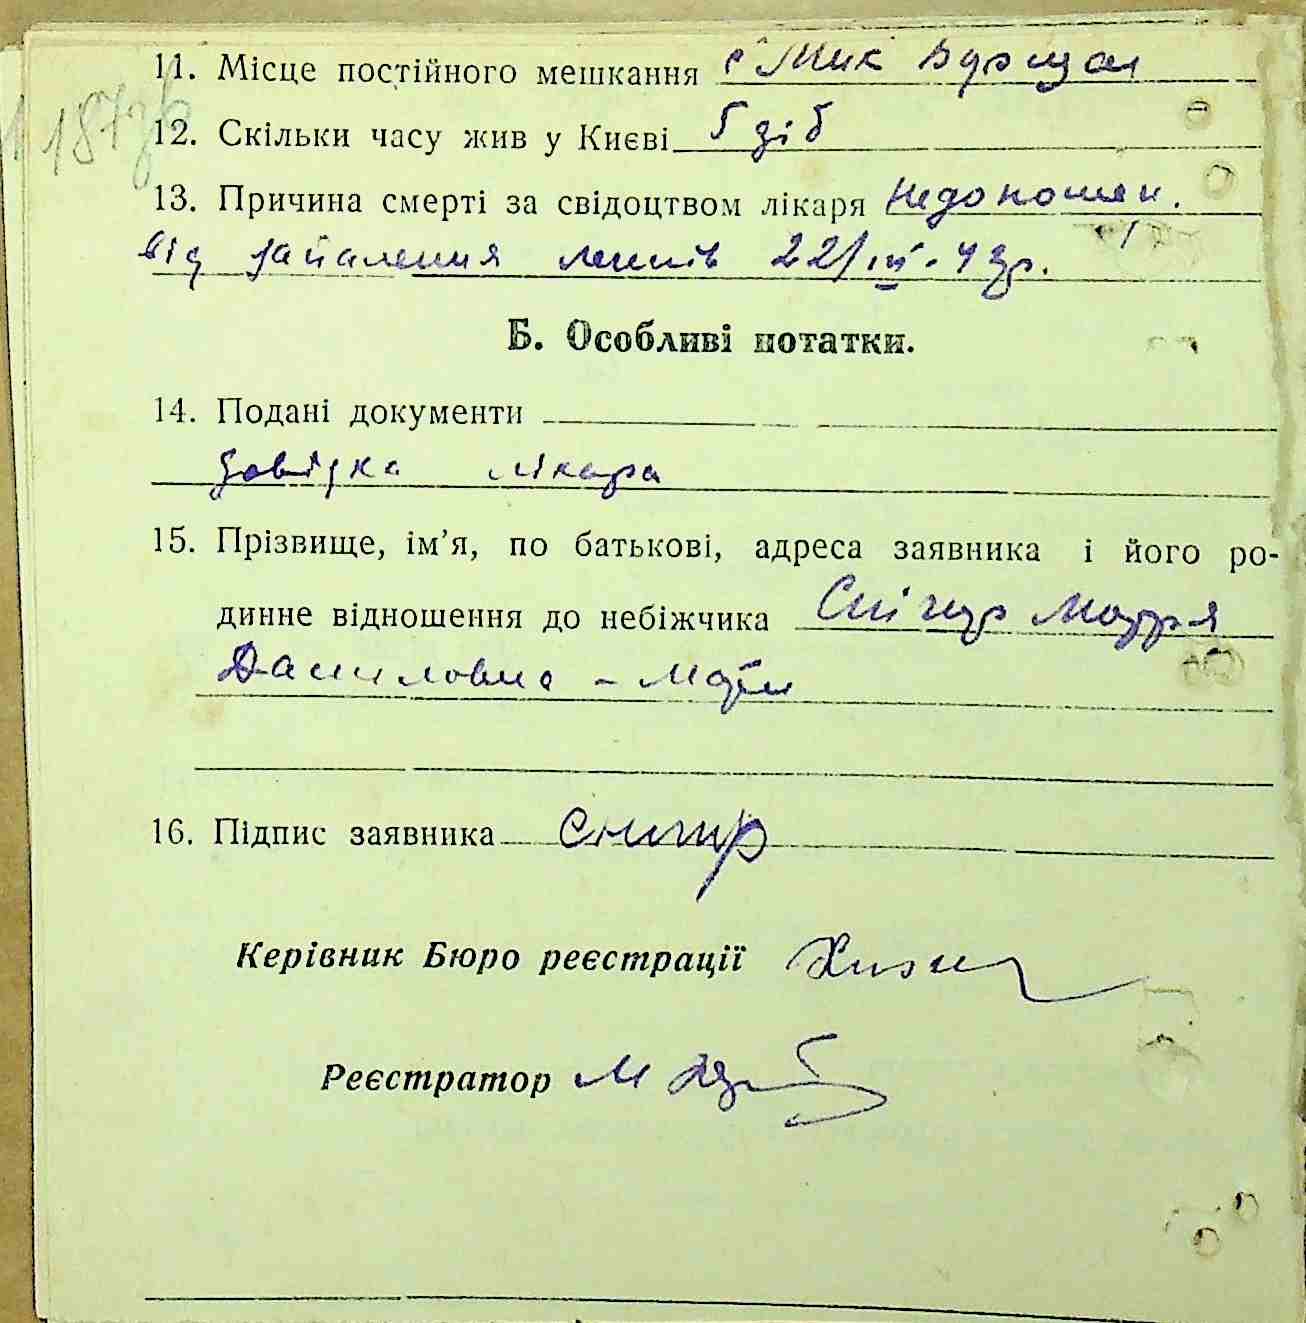 11. Місце постійного мешкання с Мик Борщаг
12. Скільки часу жив у Києві 5 діб
13. Причина смерті за свідоцтвом лікаря Недоношен.
від запалення легенів 22/III-43р.
Б. Особливі нотатки.
14. Подані документи
довідка лікаря
15. Прізвище, ім’я, по батькові, адреса заявника і його ро-
динне відношення до небіжчика Снігир Марія
Даниловна - мати
16. Підпис заявника Снигир
Керівник Бюро реєстрації
Реєстратор М